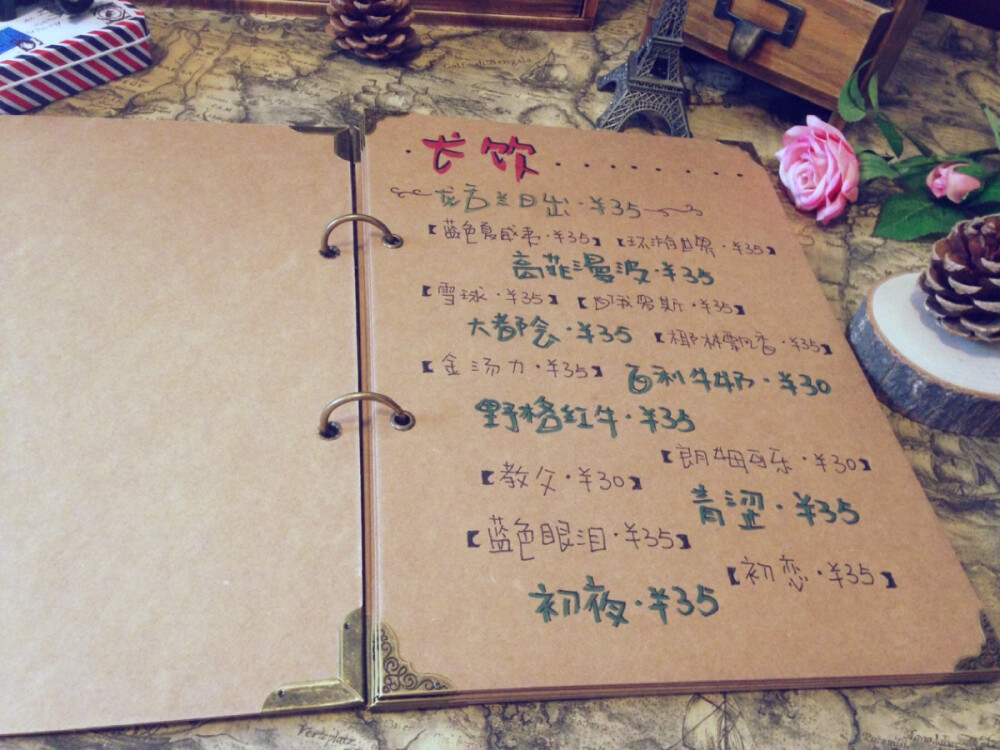 ·长饮.......
龙舌兰日出·¥35
【蓝色夏威夷·¥35】【环游世界·¥35】
高菲漫波·¥35
【雪球·¥35】【白俄罗斯·¥35】
大都会·¥35【椰林飘香·¥35】
【金汤力·¥35】百利牛奶·¥30
野格红牛·¥35
【朗姆可乐·¥30】
【教父·¥30】
青涩·¥35
【蓝色眼泪·¥35】
【初恋·¥35】
初夜·¥35